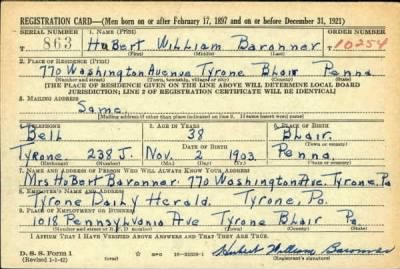 REGISTRATION CARD—(Men born on or after February 17, 1897 and on or before December 31, 1921)
SERIAL NUMBER 1. NAME (Print) ORDER NUMBER
S 863 Hubert William Baronner 10254
(First) (Middle) (Last)
2. PLACE OF RESIDENCE (Print)
770 Washington Avenue Tyrone Blair Penna
(Number and street) (Town, township, village, or city) (County) (State)
[THE PLACE OF RESIDENCE GIVEN ON THE LINE ABOVE WILL DETERMINE LOCAL BOARD
JURISDICTION; LINE 2 OF REGISTRATION CERTIFICATE WILL BE IDENTICAL]
3. MAILING ADDRESS
Same
[Mailing address if other than place indicated on line 2. If same insert word same]
4. TELEPHONE 5. AGE IN YEARS 6. PLACE OF BIRTH
Bell 38 Blair
DATE OF BIRTH (Town or county)
Tyrone 238 J. Nov. 2 1903 Penna
(Exchange) (Number) (Mo.) (Day) (Yr.) (State or country)
7. NAME AND ADDRESS OF PERSON WHO WILL ALWAYS KNOW YOUR ADDRESS
Mrs Hubert Baronner 770 Washington Ave. Tyrone, Pa
8. EMPLOYER'S NAME AND ADDRESS
Tyrone Daily Herald, Tyrone, Pa.
9. PLACE OF EMPLOYMENT OR BUSINESS
1018 Pennsylvania Ave Tyrone Blair Pa
(Number and street or R. F. D. number) (Town) (County) (State)
I AFFIRM THAT I HAVE VERIFIED ABOVE ANSWERS AND THAT THEY ARE TRUE.
D. S. S. Form 1 GPO Hubert William Baronner
(Revised 1-1-42) (Registrant's signature)